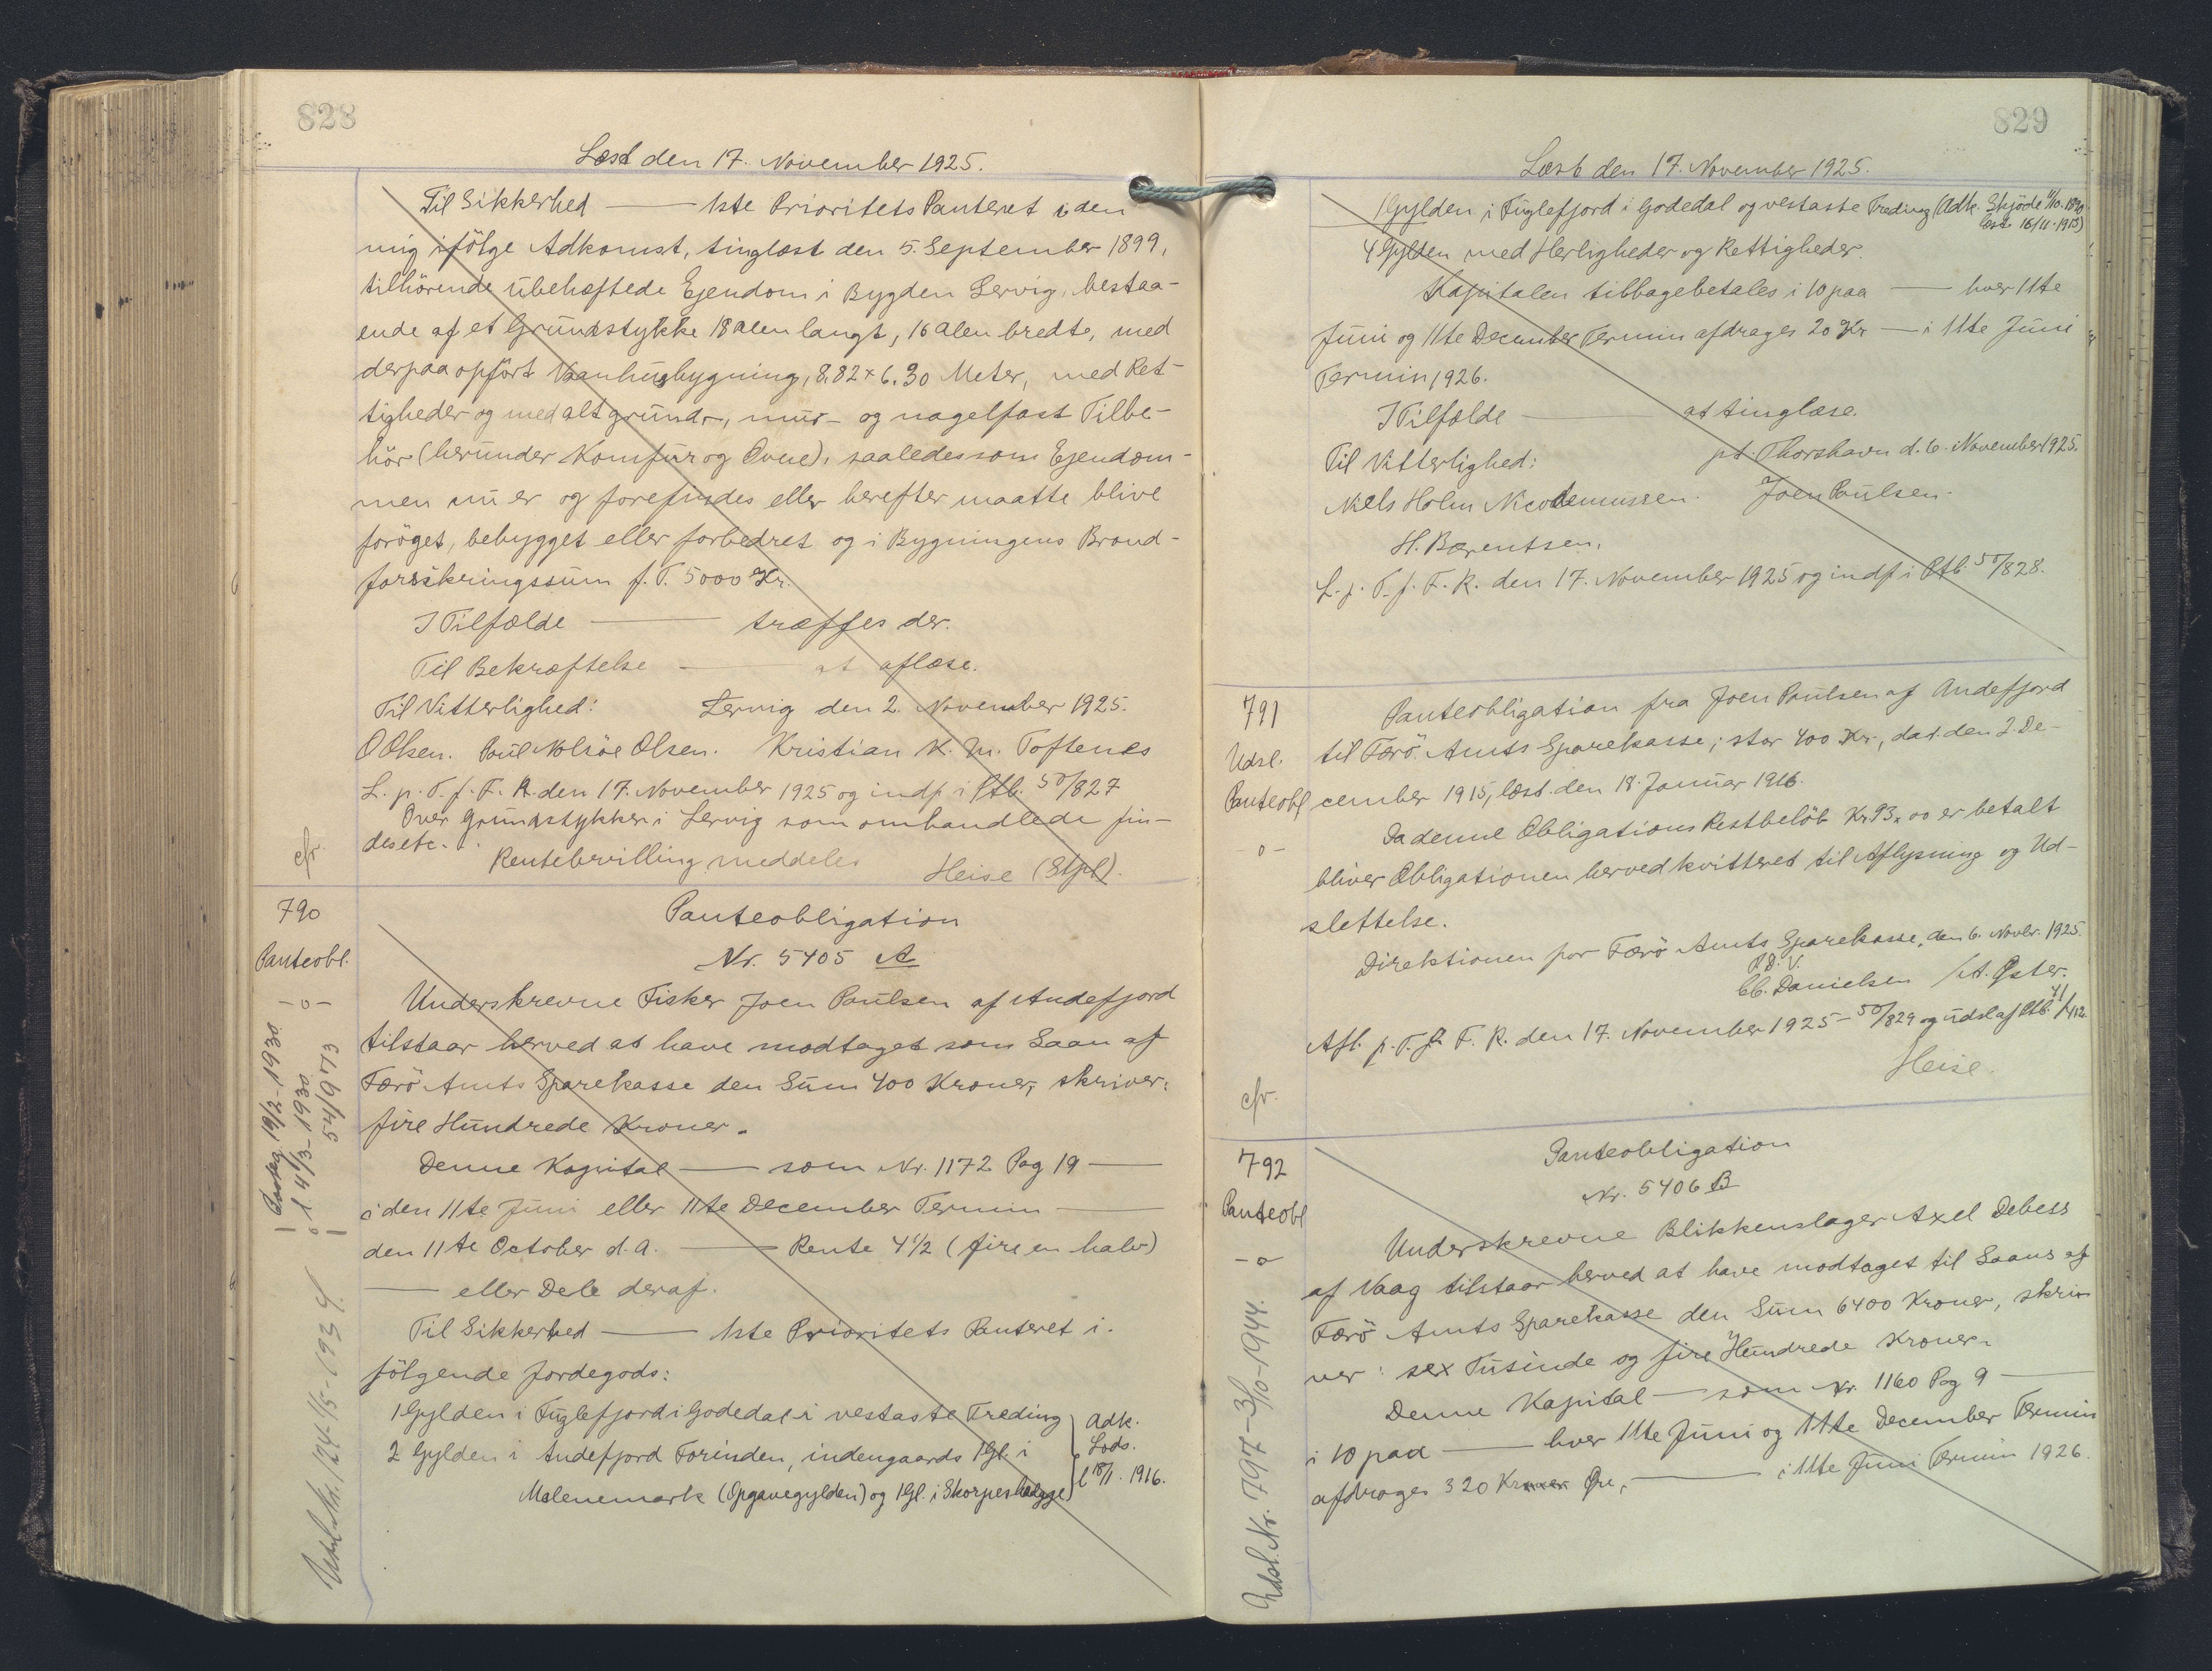 828
Læst den 17. November 1925.
Til Sikkerhed — 1ste Prioritets Panteret i den
mig ifölge Adkomst, tinglæst den 5. September 1899,
tilhörende ubehæftede Ejendom i Bygden Lervig, bestaa-
ende af et Grundstykke 18 Alen langt, 16 Alen bredte, med
derpaa opfört Vaanhusbygning, 8,82 x 6,30 Meter, med Ret-
tigheder og med alt grund-, mur- og nagelfast Tilbe-
hör (herunder Komfur og Ovne), saaledes som Ejendom-
men nu er og forefindes eller herefter maatte blive
foröget, bebygget eller forbedret og i Bygningens Brand-
forsikringssum f. T. 5000 Kr.
I Tilfælde — træffes der.
Til Bekræftelse — at aflæse.
Til Vitterlighed: Lervig den 2. November 1925.
O Olsen. Poul Nolsöe Olsen. Kristian K. M. Toftenes
L. p. T. f. F. R. den 17. November 1925 og indf. i Ptb. 50/827
Over Grundstykker i Lervig som omhandlede fin-
des etc.
Rentebevilling meddeles
Heise (Stpl).
cfr.
790
Panteobl.
- o -
Panteobligation
Nr. 5405 A
Underskrevne Fisker Joen Poulsen af Andefjord
tilstaar herved at have modtaget som Laan af
Færö Amts Sparekasse den Sum 400 Kroner, skriver:
fire Hundrede Kroner.
Denne Kapital — som Nr. 1172 Pag 19 —
i den 11te Juni eller 11te December Termin —
den 11te October d. A. — Rente 4 1/2 (fire en halv)
— eller Dele deraf.
Til Sikkerhed — 1ste Prioritets Panteret i.
fölgende Jordegods:
1 Gylden i Fuglefjord i Godedal i vestaste Treding
2 Gylden i Andefjord Forinden, indengaards 1 Gl. i
Malenemark (Opgavegylden) og 1 Gl. i
Adk.
Lods.
l 18/1. 1916.
19/2-1930.
l. 4/3-1930.
54/973
829
Læst den 17. November 1925.
1 Gylden i Fuglefjord i Godedal og vestaste Treding (Adk. Skjöde 11/10.1890
læst 16/11.1915)
4 Gylden med Herligheder og Rettigheder.
Kapitalen tilbagebetales i 10 paa — hver 11te
Juni og 11te December Termin afdrages 20 Kr — i 11te Juni
Termin 1926.
I Tilfælde — at tinglæse.
Til Vitterlighed: pt. Thorshavn d. 6. November 1925.
Niels Holm Nicodemussen. Joen Poulsen.
H. Bærentsen.
L. p. T. f. F. R. den 17. November 1925 og indf i Ptb 50/828.
791
Udsl.
Panteobl
- o -
Panteobligation fra Joen Poulsen af Andefjord
til Færö Amts Sparekasse, stor 400 Kr., dat. den 2. De-
cember 1915, læst. den 18. Januar 1916.
Da denne Obligations Restbelöb Kr. 93,00 er betalt
bliver Obligationen herved kvitteret til Aflysning og Ud-
slettelse.
Direktionen for Færö Amts Sparekasse, den 6. Novbr. 1925.
P.D.V.
C. Danielsen / A. Öster.
Afl. p. T. f. F. R. den 17. November 1925 - 50/829 og udsl af Ptb. 41/412
Heise.
cfr.
792
Panteobl
- o
Panteobligation
Nr. 5406 B
Underskrevne Blikkenslager Axel Debess
af Vaag tilstaar herved at have modtaget til Laans af
Færö Amts Sparekasse den Sum 6400 Kroner, skri-
ver: sex Tusinde og fire Hundrede Kroner.
Denne Kapital — som Nr. 1160 Pag 9 —
i 10 paa — hver 11te Juni og 11te December Termin
afdrages 320 Kroner Öre, — i 11te Juni Termin 1926.
Udsl. Nr. 797-3/10-1944.